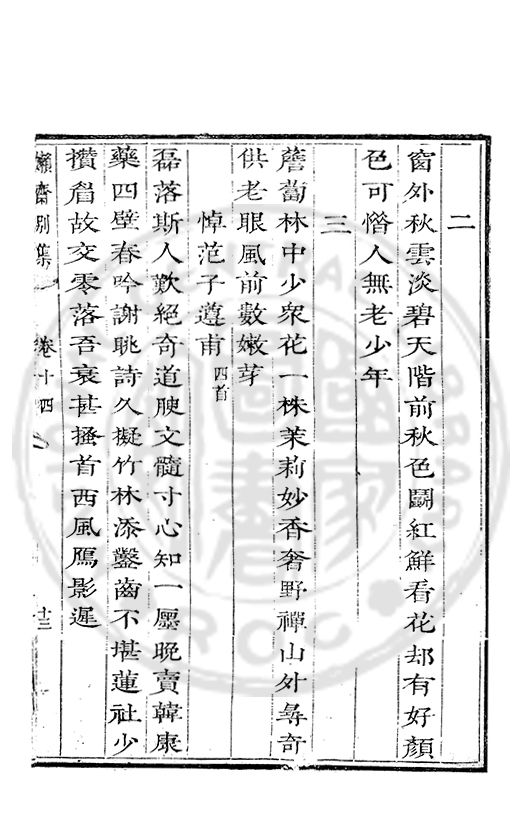 二
窗外秋雲淡碧天階前秋色鬭紅鮮看花却有好顏
色可憯人無老少年
三
薝蔔林中少衆花一株茉莉妙香奢野禪山外尋奇
供老眼風前數嫩芽
悼范子遵甫四首
磊落斯人歎絕奇道腴文髓寸心知一廛晚賣韓康
藥四壁春吟謝朓詩久擬竹林添鑿齒不堪蓮社少
攢眉故交零落吾衰甚搔首西風鴈影遲
嬾齋別集 卷十四 十三